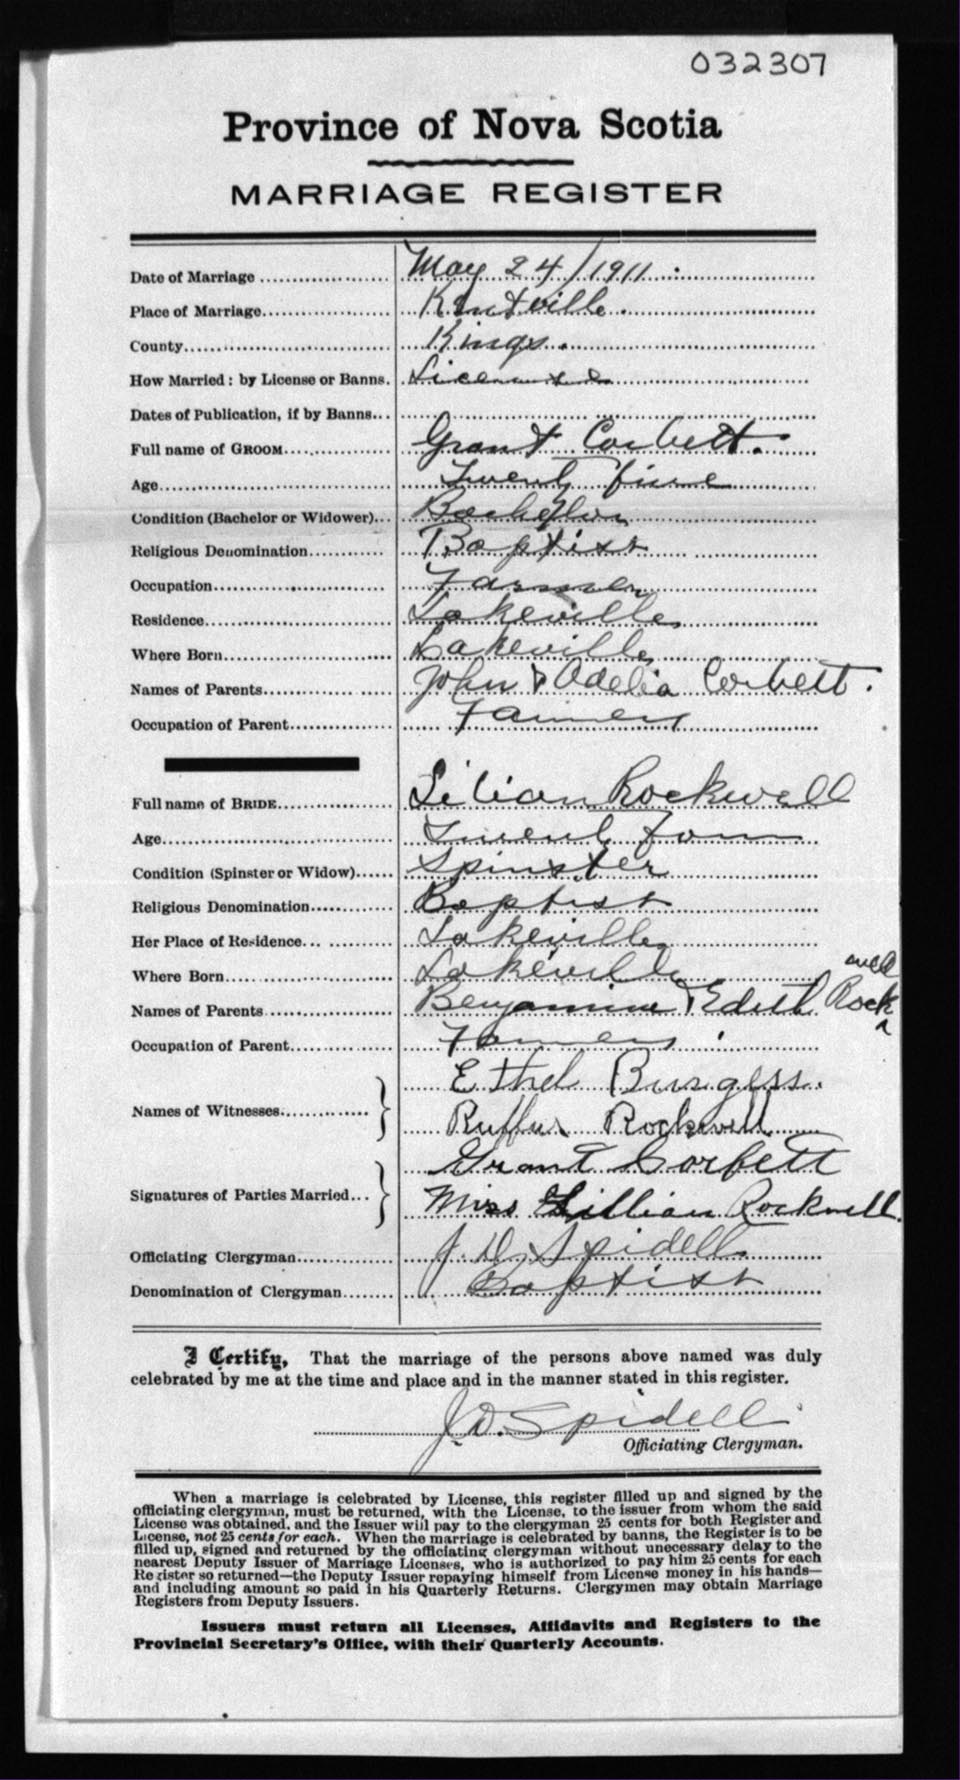 032307
Province of Nova Scotia
MARRIAGE REGISTER
Date of Marriage May 24/1911.
Place of Marriage Kentville.
County Kings.
How Married: by License or Banns. License
Dates of Publication, if by Banns
Full name of GROOM Grant Corbett.
Age Twenty five
Condition (Bachelor or Widower) Bachelor
Religious Denomination Baptist
Occupation Farmer
Residence Lakeville
Where Born Lakeville
Names of Parents John & Adelia Corbett.
Occupation of Parent Farmer
Full name of BRIDE Lilian Rockwell
Age Twenty Four
Condition (Spinster or Widow) Spinster
Religious Denomination Baptist
Her Place of Residence Lakeville
Where Born Lakeville
Names of Parents Benjamine & Edith Rockwell
Occupation of Parent Farmer
Ethel Burgess.
Names of Witnesses
Ruffus Rockwell
Grant Corbett
Signatures of Parties Married
Miss Lillian Rockwell.
Officiating Clergyman J. D. Spidell
Denomination of Clergyman Baptist
I Certify, That the marriage of the persons above named was duly
celebrated by me at the time and place and in the manner stated in this register.
J. D. Spidell
Officiating Clergyman.
When a marriage is celebrated by License, this register filled up and signed by the
officiating clergyman, must be returned, with the License, to the issuer from whom the said
License was obtained, and the Issuer will pay to the clergyman 25 cents for both Register and
License, not 25 cents for each. When the marriage is celebrated by banns, the Register is to be
filled up, signed and returned by the officiating clergyman without unecessary delay to the
nearest Deputy Issuer of Marriage Licenses, who is authorized to pay him 25 cents for each
Register so returned—the Deputy Issuer repaying himself from License money in his hands—
and including amount so paid in his Quarterly Returns. Clergymen may obtain Marriage
Registers from Deputy Issuers.
Issuers must return all Licenses, Affidavits and Registers to the
Provincial Secretary's Office, with their Quarterly Accounts.